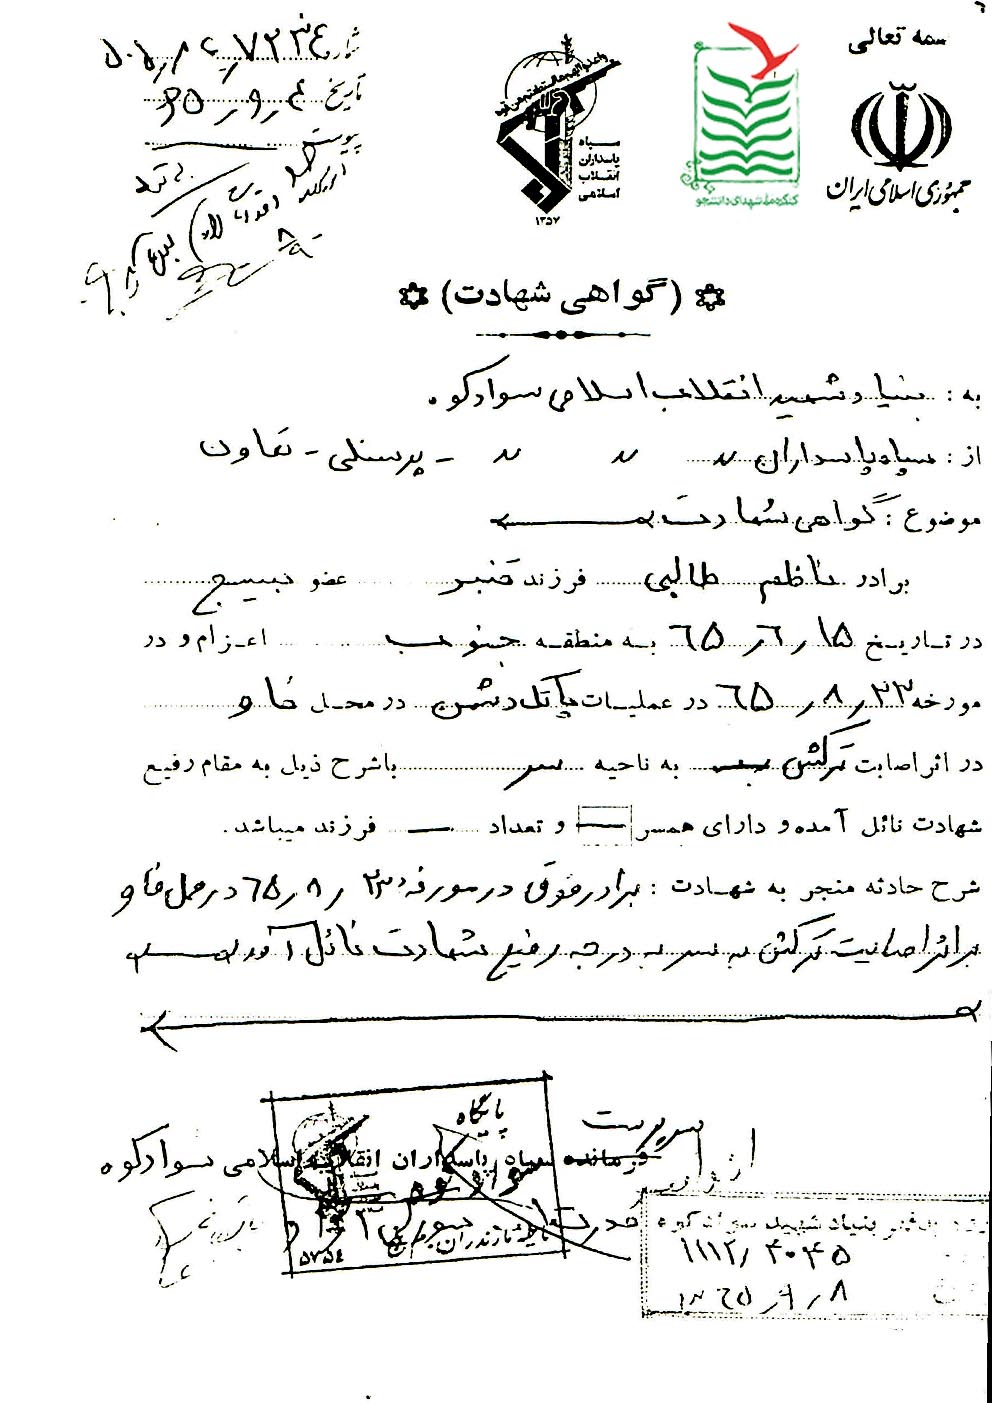 بسمه تعالی
جمهوری اسلامی ایران
کنگره ملی شهدای دانشجو
سپاه
پاسداران
انقلاب
اسلامی
۱۳۵۷
شماره
تاریخ ۶۵٫۹٫۴
پیوست
(گواهی شهادت)
به : بنیاد شهید انقلاب اسلامی سوادکوه .
از : سپاه پاسداران 〃 〃 〃 - پرسنلی - تعاون
موضوع : گواهی شهادت
برادر ناظم طالبی فرزند قنبر عضو بسیج
در تاریخ ۶۵٫۶٫۱۵ به منطقه جنوب اعزام و در
مورخه ۶۵٫۸٫۲۳ در عملیات پاتک دشمن در محل فاو
در اثر اصابت ترکش به ناحیه سر باشرح ذیل به مقام رفیع
شهادت نائل آمده و دارای همسر — و تعداد — فرزند میباشد.
شرح حادثه منجر به شهادت : برادر فوق در مورخه ۶۵٫۸٫۲۳ در محل فاو
بر اثر اصابت ترکش به سر به درجه رفیع شهادت نائل آمد
پایگاه
سرپرست
فرمانده سپاه پاسداران انقلاب اسلامی سوادکوه
مازندران
۵۷۵۴
دفتر بنیاد شهید سوادکوه
۱۱۱۲٫۴۰۴۵
۶۵٫۹٫۸